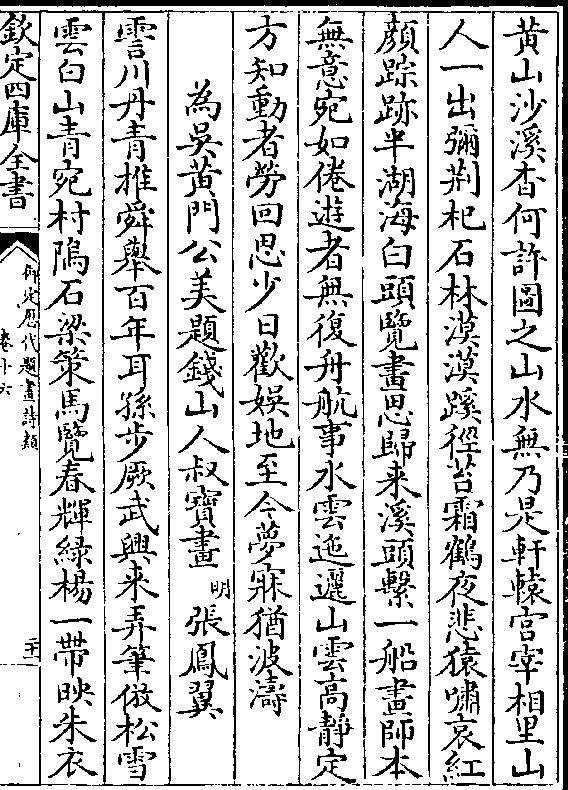 黄山沙溪杳何許圖之山水無乃是軒轅宫宰相里山
人一出彌荆杞石林漠漠蹊徑苔霜鶴夜悲猿嘯哀紅
顔踪跡半湖海白頭覽畫思歸来溪頭繫一船畫師本
無意宛如倦遊者無復舟航事水雲迤邐山雲高靜定
方知動者勞回思少日歡娱地至今夢寐猶波濤
為吳黄門公美題錢山人叔寶畫 明 張鳳翼
霅川丹青推舜舉百年耳孫步厥武興来弄筆倣松雪
雲白山青宛村隖石梁策馬覽春輝緑楊一帶映朱衣
欽定四庫全書
御定歴代題畫詩類
卷十六
二十一